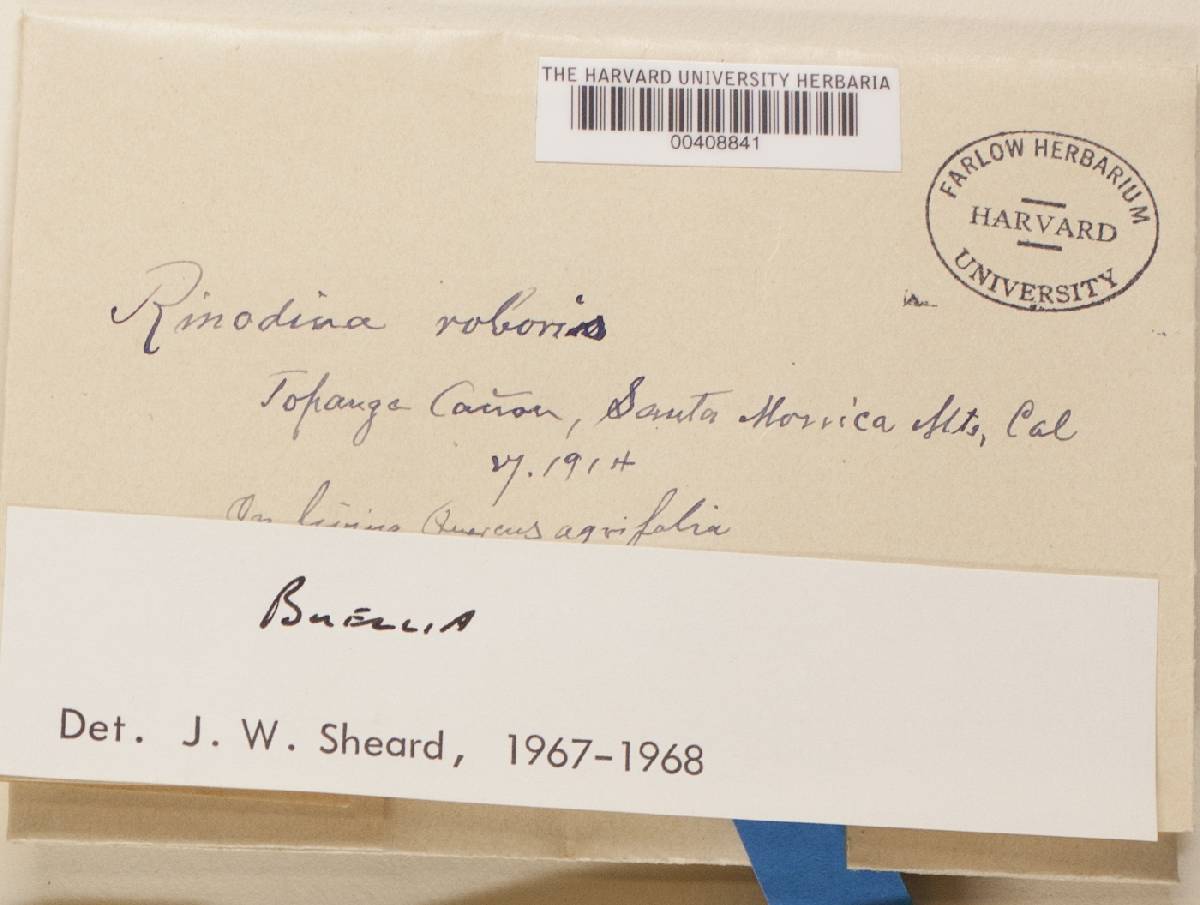 THE HARVARD UNIVERSITY HERBARIA
00408841
FARLOW HERBARIUM
HARVARD
UNIVERSITY
Rinodina roboris
Topanga Cañon, Santa Monica Mts, Cal
1914
On living Quercus agrifolia
BUELLIA
Det. J. W. Sheard, 1967-1968